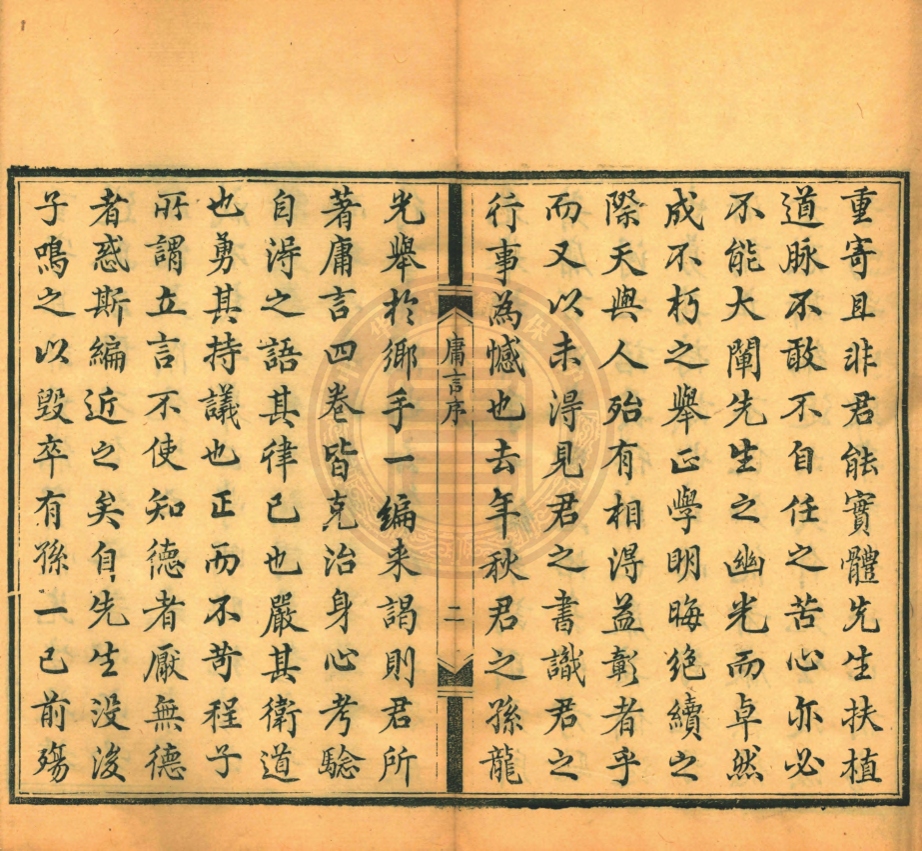 重寄且非君能實體先生扶植
道脉不敢不自任之苦心亦必
不能大闡先生之幽光而卓然
成不朽之舉正學明晦絶續之
際天與人殆有相得益彰者乎
而又以未得見君之書識君之
行事為憾也去年秋君之孫龍
庸言序
二
光舉於鄉手一編来謁則君所
著庸言四卷皆克治身心考驗
自得之語其律已也嚴其衛道
也勇其持議也正而不苛程子
所謂立言不使知德者厭無德
者惑斯編近之矣自先生没後
子鳴之以毀卒有孫一已前殤